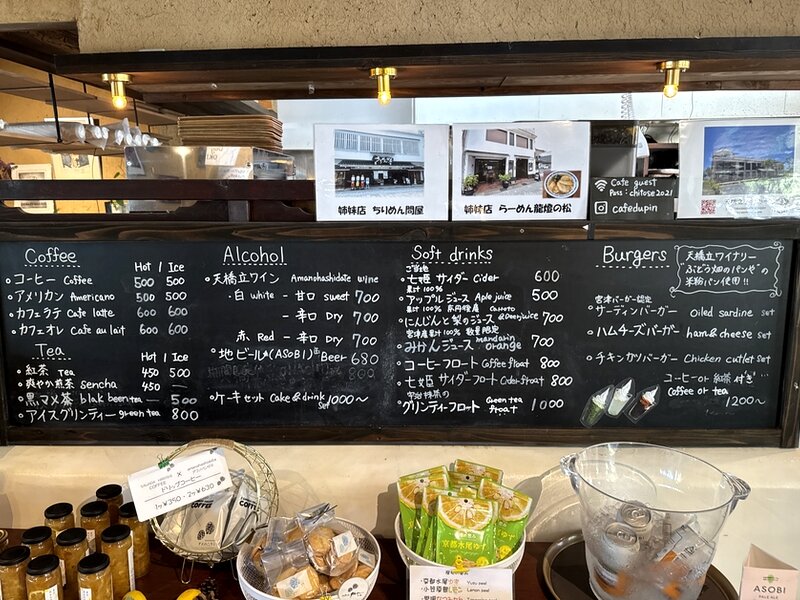 姉妹店 ちりめん問屋
姉妹店 らーめん龍燈の松
Cafe guest
Pass: chitose2021
cafedupin
Coffee
Hot / Ice
コーヒー Coffee 500 500
アメリカン Americano 500 500
カフェラテ Cafe latte 600 600
カフェオレ Cafe au lait 600 600
Tea
Hot / Ice
紅茶 Tea 450 500
爽やか煎茶 Sencha 450 —
黒マメ茶 blak been tea — 500
アイスグリンティー green tea 800
Alcohol
天橋立ワイン Amanohashidate wine
・白 white - 甘口 sweet 700
- 辛口 Dry 700
赤 Red - 辛口 Dry 700
地ビール(ASOBI)缶 Beer 680
800
ケーキセット Cake & drink set 1000~
Soft drinks
ご当地
七姫 サイダー Cider 600
果汁100%
アップルジュース Aple juice 500
果汁100% 京丹後産 Carroto
にんじんと梨のジュース &Peerjuice 700
宮津産果汁100% 数量限定
みかんジュース mandarin orange 700
コーヒーフロート Coffee froat 800
七姫 サイダーフロート Cider froat 800
宇治抹茶の
グリンティーフロート Green tea froat 1000
Burgers
天橋立ワイナリー
ぶどう畑のパンやの
米粉パン使用!!
宮津バーガー認定
サーディンバーガー Oiled sardine set
ハムチーズバーガー ham & cheese set
チキンカツバーガー Chicken cutlet set
コーヒー or 紅茶 付き
Coffee or tea
1200~
COFFEE
ドリップコーヒー
1ヶ¥350・2ヶ¥630
京都水尾ゆず
京都水尾ゆず Yuzu peel
小笠原島レモン Lemon peel
ASOBI
PALE ALE